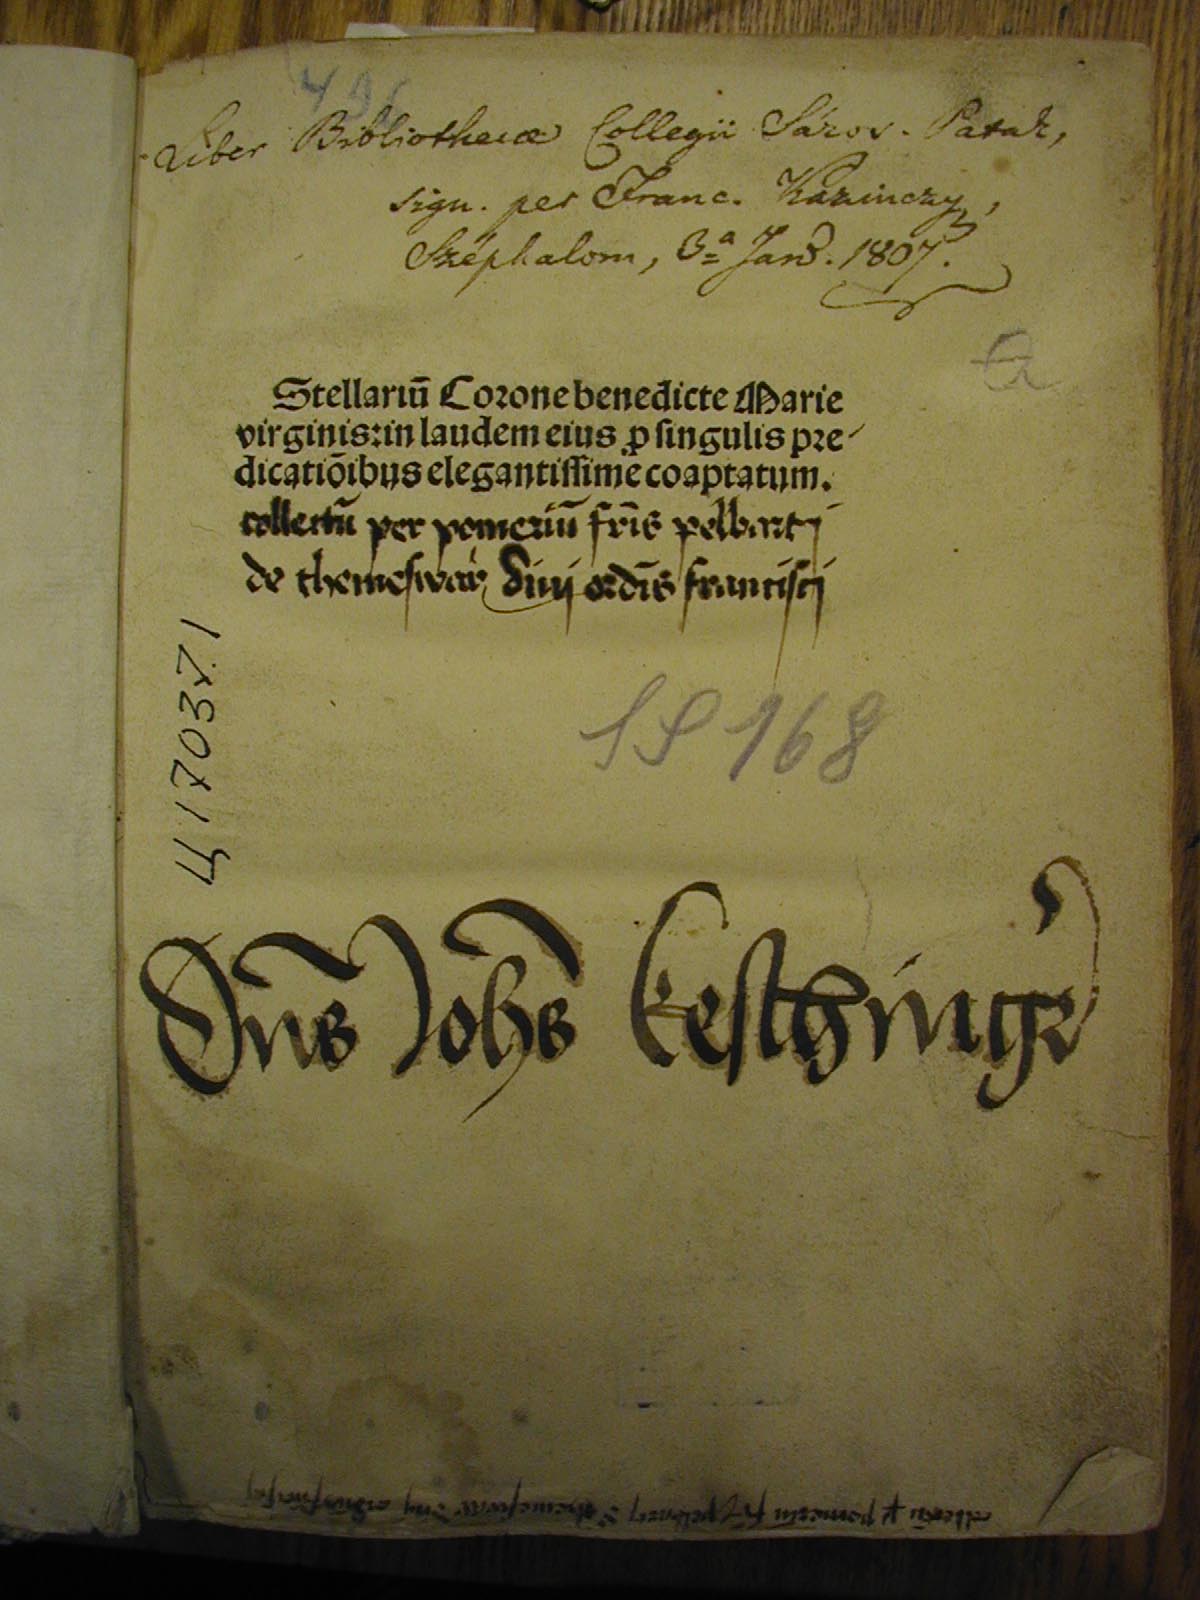 496
Liber Bibliothecæ Collegii Sáros. Patak,
sign. per Franc. Kazinczy,
Széphalom, 3ª Jan. 1807.
Stellariū Corone benedicte Marie
virginis: in laudem eius ꝓ singulis pre-
dicatiōibus elegantissime coaptatum.
collectū per pomeriū fr̄is pelbarti
de themeswar diui ordīs francisci
SS 168
Ц 17037.1
Dn̄s Joh̄s keschinger